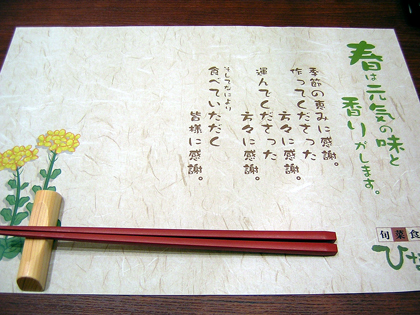 春は元気の味と
香りがします。
季節の恵みに感謝。
作ってくださった
方々に感謝。
運んでくださった
方々に感謝。
そしてなにより
食べていただく
皆様に感謝。
旬菜食